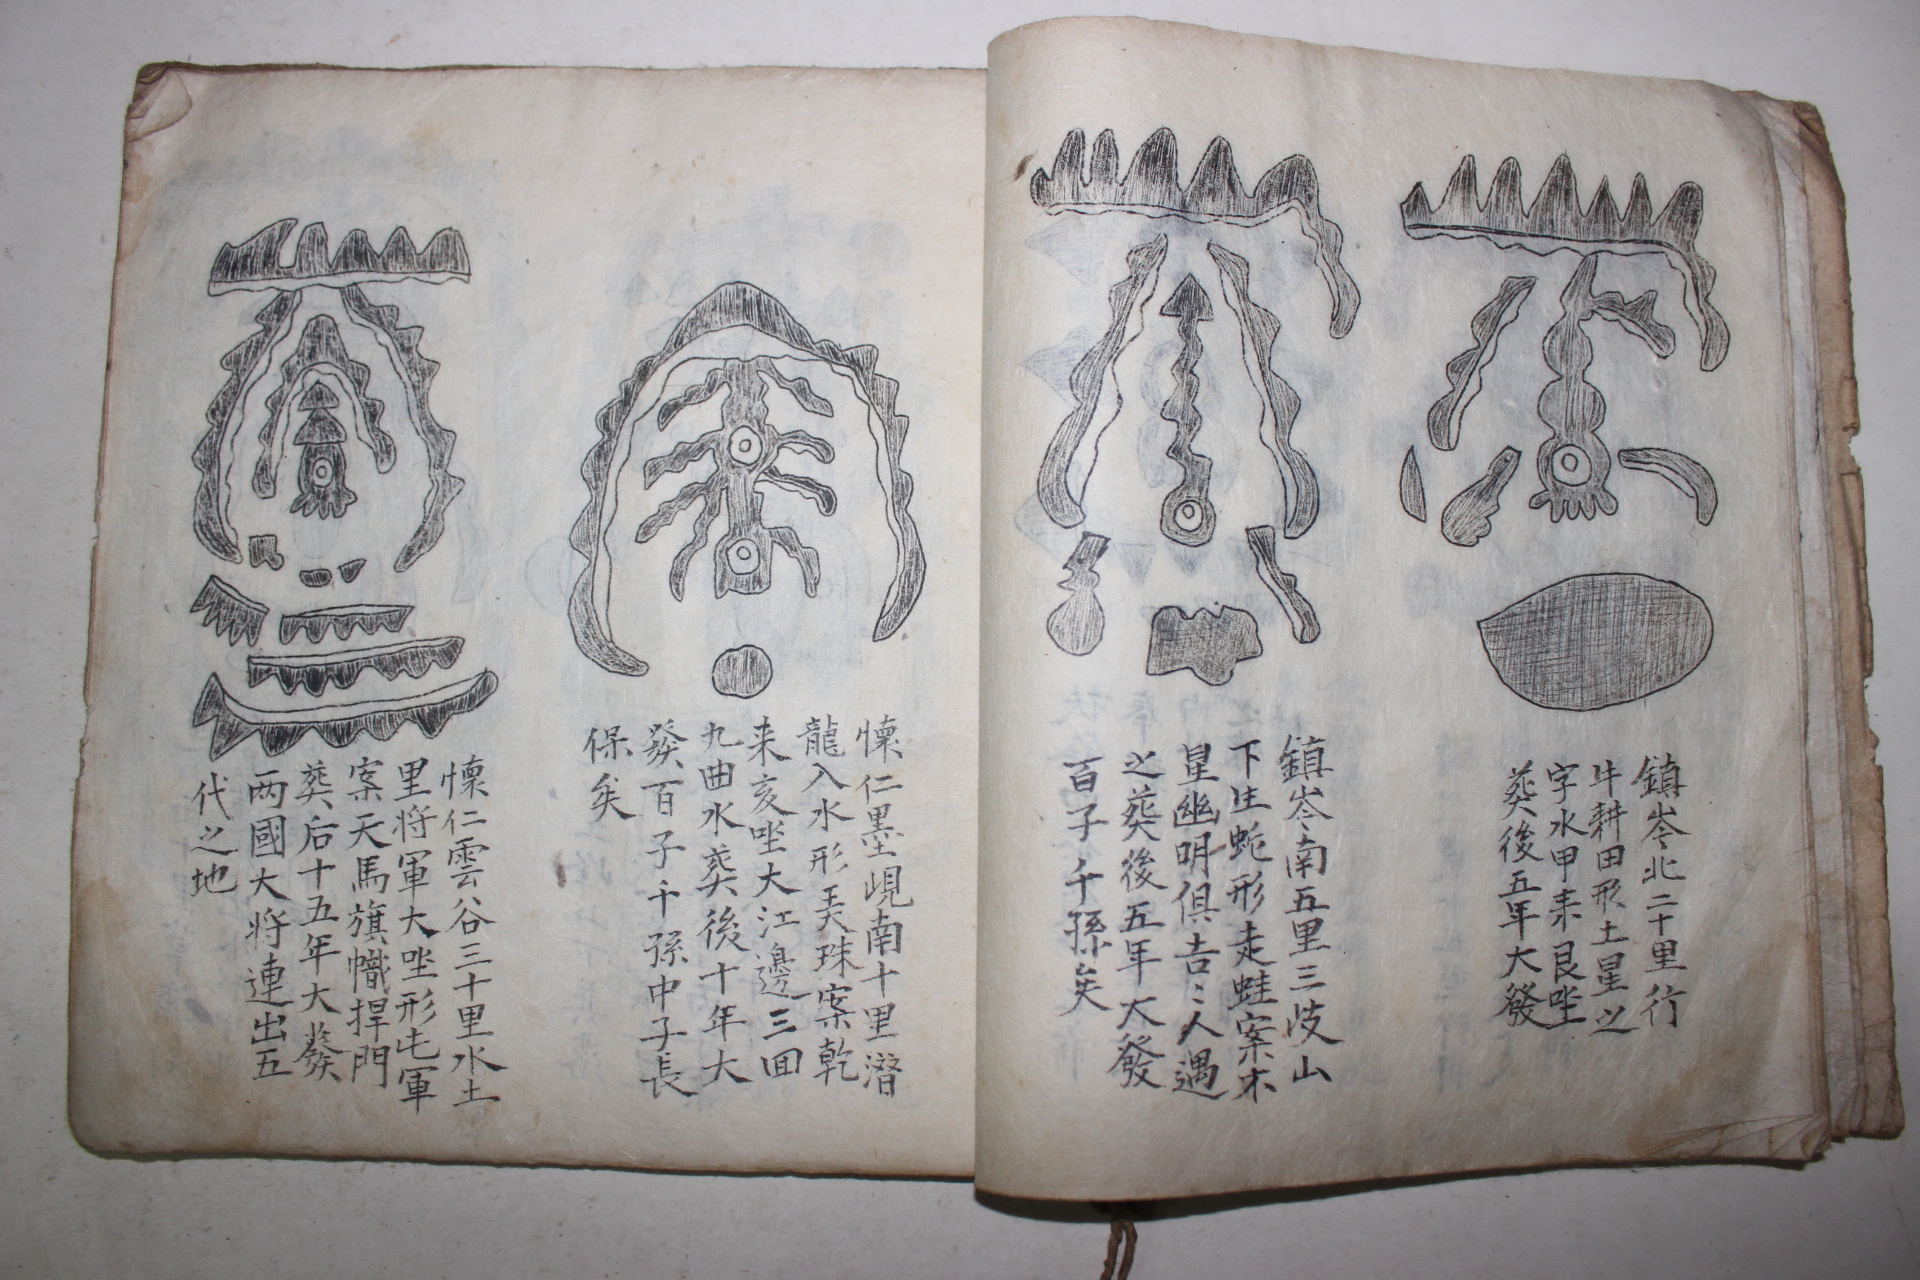 鎮岑北二十里行
牛耕田形土星之
字水甲来艮坐
葬後五年大發
鎮岑南五里三歧山
下生蛇形走蛙案木
星幽明俱吉〻人遇
之葬後五年大發
百子千孫矣
懐仁墨峴南十里潜
龍入水形美珠案乾
来亥坐大江邊三回
九曲水葬後十年大
發百子千孫中子長
保矣
懐仁雲谷三十里水土
里将軍大坐形屯軍
案天馬旗幟捍門
葬后十五年大發
两國大将連出五
代之地